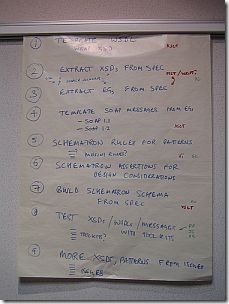 ① TEMPLATE WSDL
WRAP XSD? XSLT
② EXTRACT XSDs FROM SPEC
③ EXTRACT EGs FROM SPEC
④ TEMPLATE SOAP MESSAGES FROM EGs
- SOAP 1.1
- SOAP 1.2 XSLT
⑤ SCHEMATRON RULES FOR PATTERNS
⑥ SCHEMATRON ASSERTIONS FOR
DESIGN CONSIDERATIONS
⑦ BUILD SCHEMATRON SCHEMA
FROM SPEC
XSLT
⑧ TEST XSDs/WSDLs/MESSAGES
WITH TOOLKITS
TOOLKITS?
⑨ MORE XSDs/PATTERNS FROM ISSUES
ISSUES